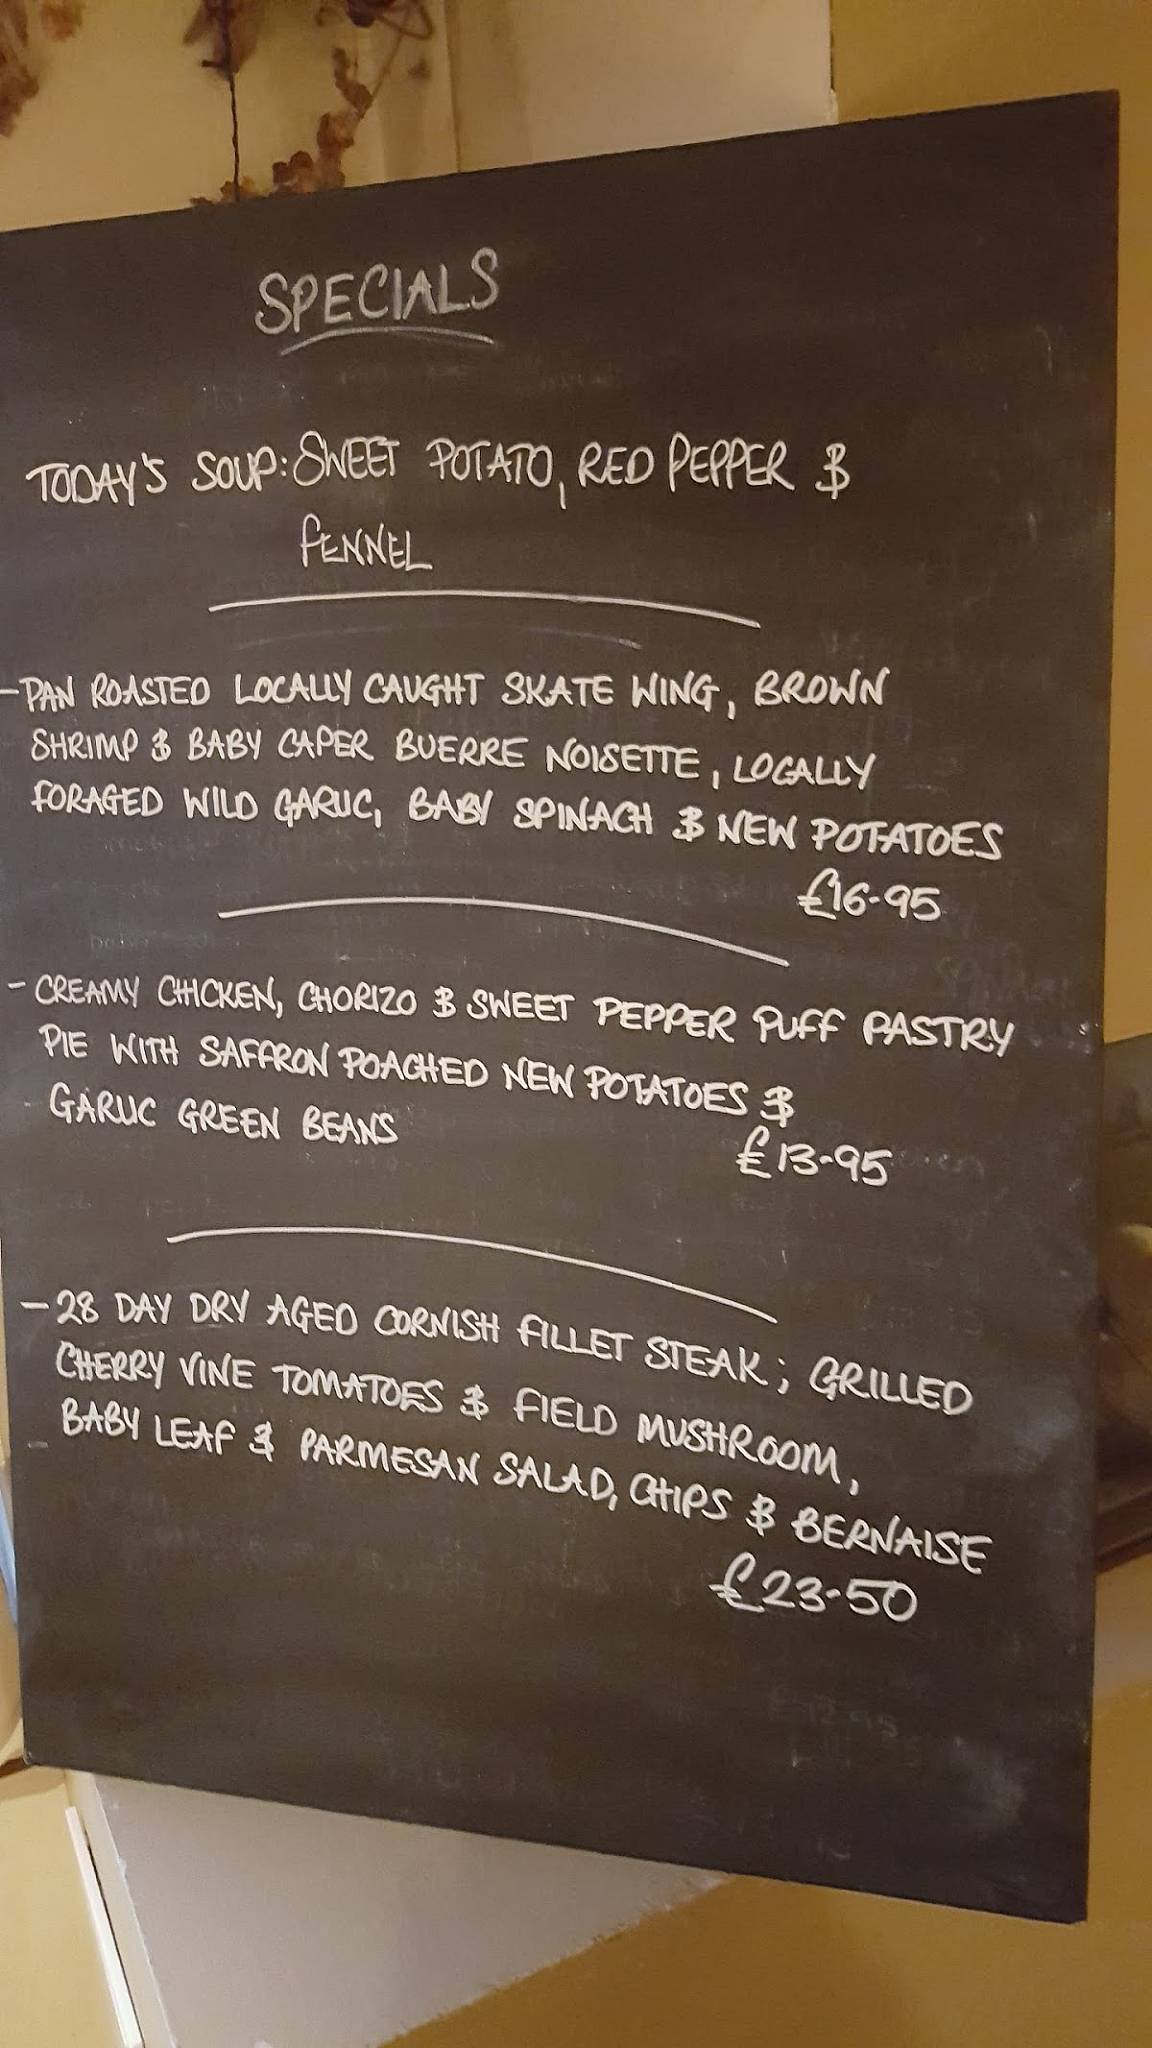 SPECIALS
TODAY'S SOUP: SWEET POTATO, RED PEPPER &
FENNEL
- PAN ROASTED LOCALLY CAUGHT SKATE WING, BROWN
SHRIMP & BABY CAPER BUERRE NOISETTE, LOCALLY
FORAGED WILD GARLIC, BABY SPINACH & NEW POTATOES
£16-95
- CREAMY CHICKEN, CHORIZO & SWEET PEPPER PUFF PASTRY
PIE WITH SAFFRON POACHED NEW POTATOES &
GARLIC GREEN BEANS
£13-95
- 28 DAY DRY AGED CORNISH FILLET STEAK; GRILLED
CHERRY VINE TOMATOES & FIELD MUSHROOM,
BABY LEAF & PARMESAN SALAD, CHIPS & BERNAISE
£23-50